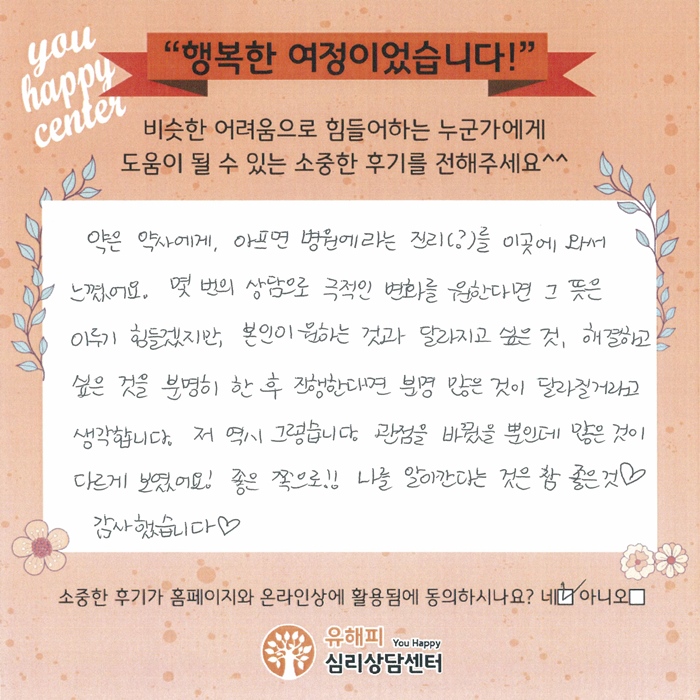 you
happy
center
“행복한 여정이었습니다!”
비슷한 어려움으로 힘들어하는 누군가에게
도움이 될 수 있는 소중한 후기를 전해주세요^^
약은 약사에게, 아프면 병원에라는 진리(?)를 이곳에 와서
느꼈어요. 몇 번의 상담으로 극적인 변화를 원한다면 그 뜻은
이루기 힘들겠지만, 본인이 원하는 것과 달라지고 싶은 것, 해결하고
싶은 것을 분명히 한 후 진행한다면 분명 많은 것이 달라질거라고
생각합니다. 저 역시 그렇습니다. 관점을 바꿨을 뿐인데 많은 것이
다르게 보였어요! 좋은 쪽으로!! 나를 알아간다는 것은 참 좋은것♡
감사했습니다♡
소중한 후기가 홈페이지와 온라인상에 활용됨에 동의하시나요? 네☑ 아니오□
유해피 You Happy
심리상담센터